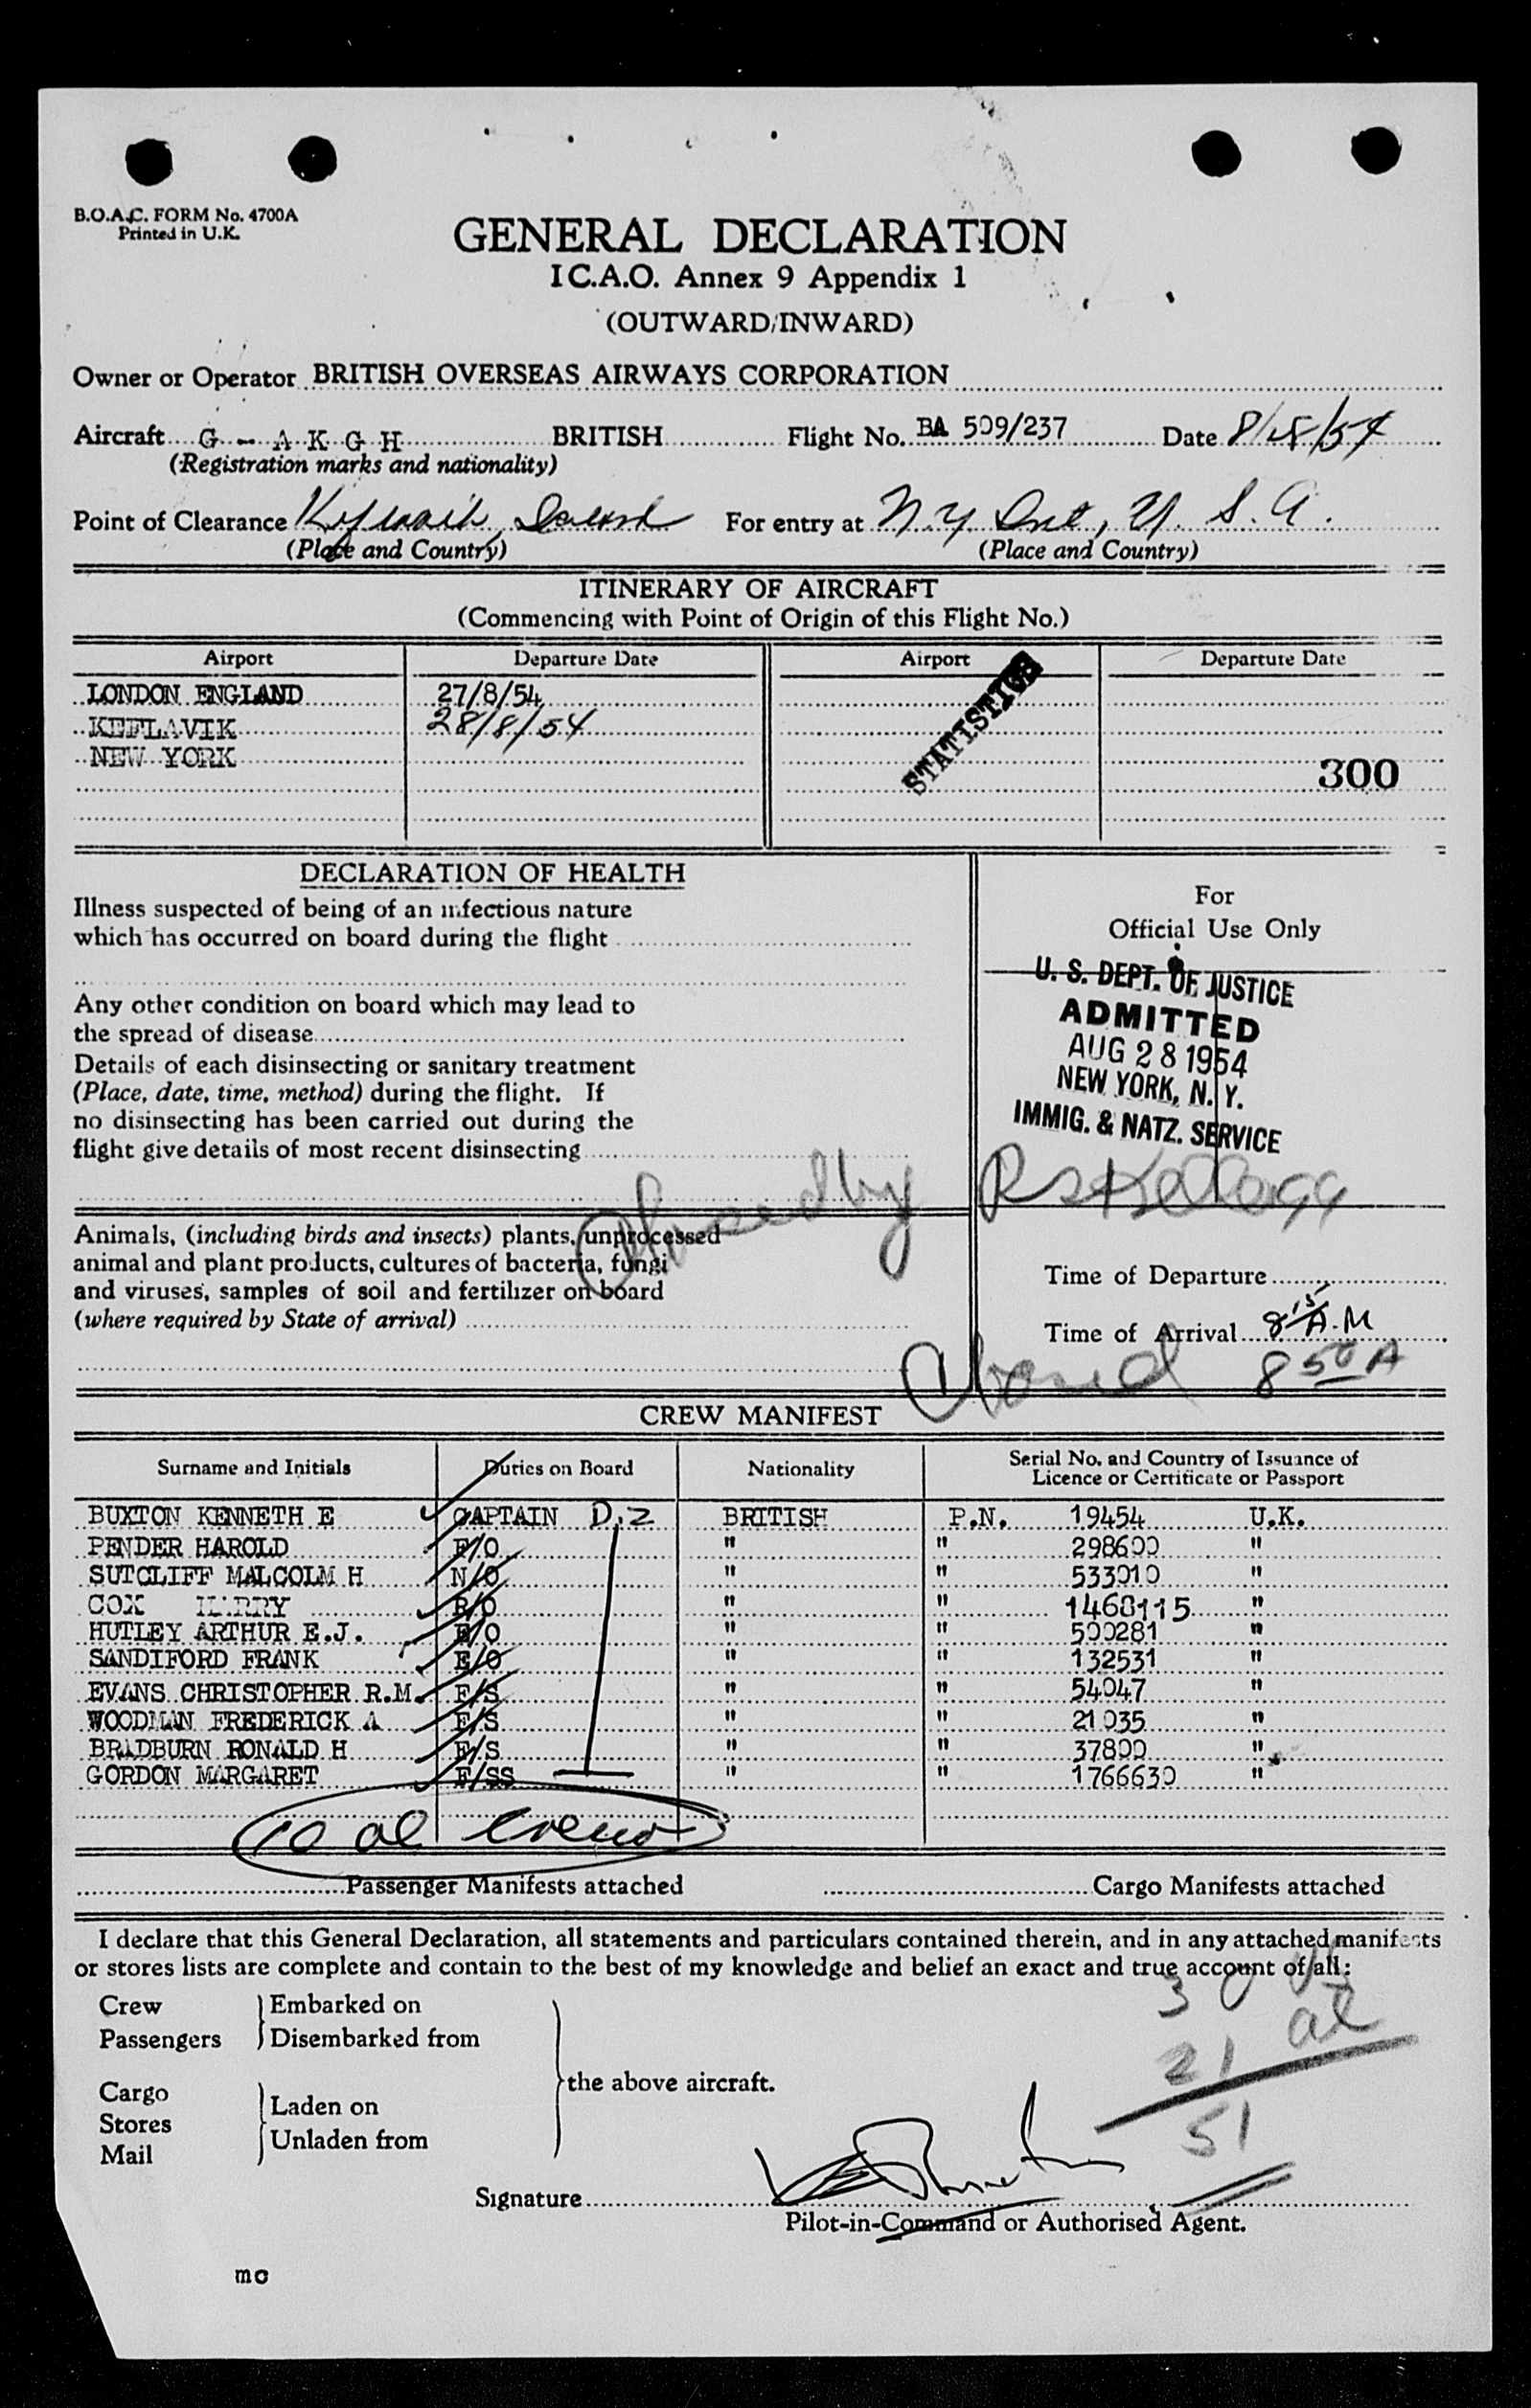 B.O.A.C. FORM No. 4700A
Printed in U.K.
GENERAL DECLARATION
I C.A.O. Annex 9 Appendix 1
(OUTWARD/INWARD)
Owner or Operator BRITISH OVERSEAS AIRWAYS CORPORATION
Aircraft G - A K G H BRITISH Flight No. BA 509/237 Date 8/28/54
(Registration marks and nationality)
Point of Clearance For entry at N.Y. U. S. A.
(Place and Country) (Place and Country)
ITINERARY OF AIRCRAFT
(Commencing with Point of Origin of this Flight No.)
Airport Departure Date Airport Departure Date
LONDON ENGLAND 27/8/54
KEFLAVIK 28/8/54
NEW YORK
STATISTICS
300
DECLARATION OF HEALTH
Illness suspected of being of an infectious nature
which has occurred on board during the flight
Any other condition on board which may lead to
the spread of disease
Details of each disinsecting or sanitary treatment
(Place, date, time, method) during the flight. If
no disinsecting has been carried out during the
flight give details of most recent disinsecting
For
Official Use Only
U. S. DEPT. OF JUSTICE
ADMITTED
AUG 28 1954
NEW YORK, N. Y.
IMMIG. & NATZ. SERVICE
by R S Kellogg
Animals, (including birds and insects) plants, unprocessed
animal and plant products, cultures of bacteria, fungi
and viruses, samples of soil and fertilizer on board
(where required by State of arrival)
Time of Departure
Time of Arrival 8 15 A.M
8 50 A
CREW MANIFEST
Surname and Initials Duties on Board Nationality Serial No. and Country of Issuance of
Licence or Certificate or Passport
BUXTON KENNETH E CAPTAIN D.2 BRITISH P.N. 19454 U.K.
PENDER HAROLD F/O " " 298600 "
SUTCLIFF MALCOLM H N/O " " 533010 "
COX HARRY R/O " " 1468115 "
HUTLEY ARTHUR E.J. E/O " " 500281 "
SANDIFORD FRANK E/O " " 132531 "
EVANS CHRISTOPHER R.M. F/S " " 54047 "
WOODMAN FREDERICK A F/S " " 21035 "
BRADBURN RONALD H F/S " " 37800 "
GORDON MARGARET F/SS " " 1766630 "
10 al crew
Passenger Manifests attached Cargo Manifests attached
I declare that this General Declaration, all statements and particulars contained therein, and in any attached manifests
or stores lists are complete and contain to the best of my knowledge and belief an exact and true account of all:
Crew Embarked on
Passengers Disembarked from
the above aircraft.
Cargo Laden on
Stores
Mail Unladen from
21 al
51
Signature
Pilot-in-Command or Authorised Agent.
mc